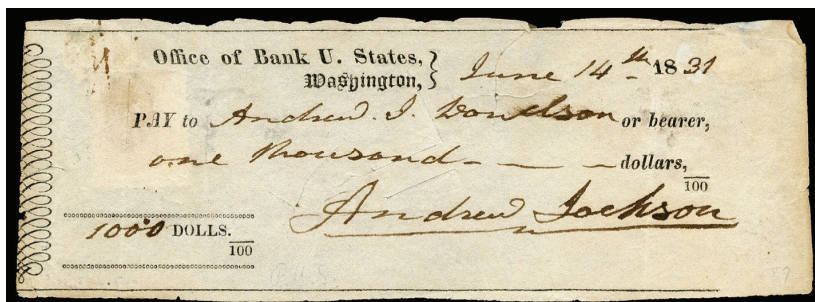 Office of Bank U. States,
Washington,
June 14th 1831
PAY to Andrew. J. Donelson or bearer,
one thousand - - - dollars,
100
Andrew Jackson
1000 DOLLS.
100